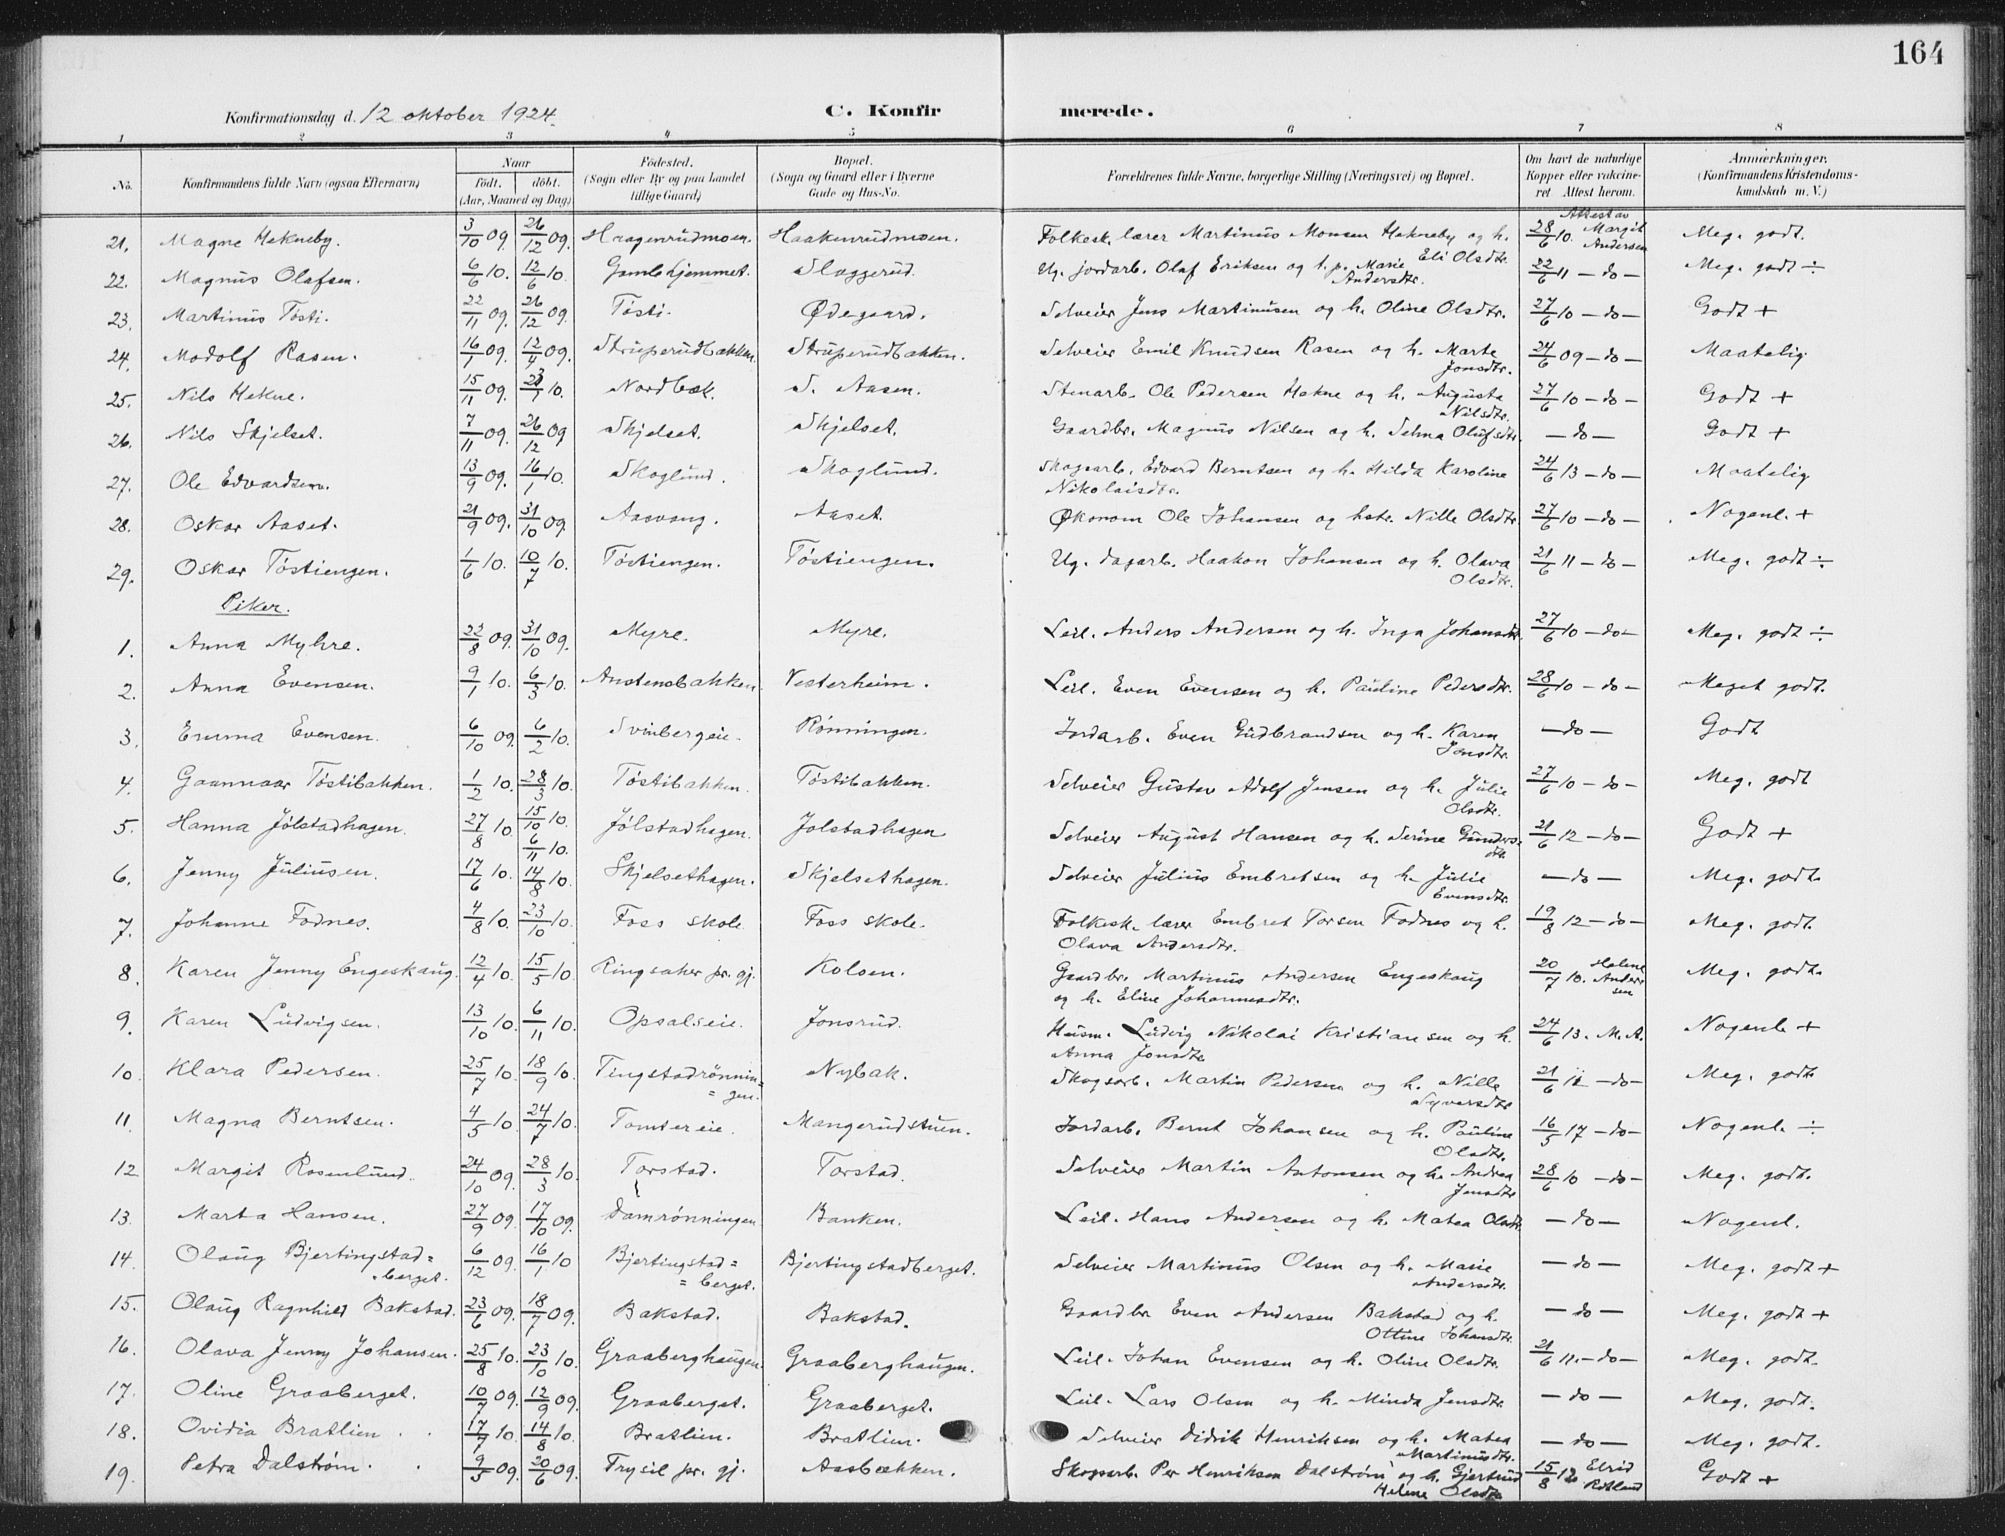 164
Konfirmationsdag d. 12 oktober 1924.
C. Konfirmerede.
1 2 3 4 5 6 7 8
No. Konfirmandens fulde Navn (ogsaa Efternavn) Naar født. døbt. (Aar, Maaned og Dag) Fødested. (Sogn eller By og paa Landet tillige Gaard) Bopæl. (Sogn og Gaard eller i Byerne Gade og Hus-No. Forældrenes fulde Navne, borgerlige Stilling (Næringsvei) og Bopæl. Om havt de naturlige Kopper eller vakcineret Attest herom. Anmærkninger. (Konfirmandens Kristendomskundskab m. V.)
21. Magne Hekneby. 3/10 09 26/12 09. Haagenrudmoen. Haakenrudmoen. Folkesk. lærer Martinus Monsen Hekneby og h. Eli Olsdtr. 28/6 10. Attest av Margit Andersen Meg. godt.
22. Magnus Olafsen. 6/6 10. 12/6 10. Gamlehjemmet. Slaggerud. Ug. jordarb. Olaf Eriksen og t. p. Marie Andersdtr. 22/6 11 - do - Meg. godt ÷
23. Martinus Tøsti. 22/11 09. 26/12 09. Tøsti. Ødegaard. Selveier Jens Martinusen og h. Oline Olsdtr. 27/6 10 - do - Godt +
24. Modolf Rasen. 16/1 09. 12/4 09. Struperudbakken. Struperudbakken. Selveier Emil Knudsen Rasen og h. Marte Jonsdtr. 24/6 09 - do - Maatelig
25. Nils Hekne. 15/11 09. 10. Nordbæk. S. Aasen. Stenarb. Ole Pedersen Hekne og h. Augusta Nilsdtr. 27/6 10 - do - Godt +
26. Nils Skjelset. 7/11 09. 26/12 09 Skjelset. Skjelset. Gaardbr. Magnus Nilsen og h. Selma Olufsdtr. - do - Godt +
27. Ole Edvardsen. 13/9 09. 16/1 10. Skoglund. Skoglund. Skogsarb. Edvard Berntsen og h. Hilda Karoline Nikolaisdtr. 24/6 13 - do - Maatelig
28. Oskar Aaset. 21/9 09. 31/10 09. Aasvang. Aaset. Økonom Ole Johansen og hstr. Nille Olsdtr. 27/6 10 - do - Nogenl. +
29. Oskar Tøstiengen. 1/6 10. 10/7 10. Tøstiengen. Tøstiengen. Ug. dagarb. Haakon Johansen og h. Olava Olsdtr. 21/6 11 - do - Meg. godt ÷
Piker.
1. Anna Myhre. 22/8 09. 31/10 09. Myre. Myre. Leil. Anders Andersen og h. Inga Johansdtr. 27/6 10 - do - Meg. godt ÷
2. Anna Evensen. 9/1 10. 6/3 10. Austensbakken. Vesterheim. Leil. Even Evensen og h. Pauline Pedersdtr. 28/6 10 - do - Meget godt.
3. Emma Evensen. 6/10 09. 6/2 10. Svinbergeie. Rønningen. Jordarb. Even Gudbrandsen og h. Karen Jonsdtr. - do - Godt
4. Gaannaar Tøstibakken. 1/2 10. 28/3 10. Tøstibakken. Tøstibakken. Selveier Gustav Adolf Jensen og h. Julie Olsdtr. 27/6 10 - do - Meg. godt
5. Hanna Jølstadhagen. 27/8 10 15/10 10. 6/11 10. Jølstadhagen. Jolstadhagen Selveier August Hansen og h. Serine Gundersdtr. 21/6 12 - do - Godt +
6. Jenny Juliusen. 17/6 10. 14/8 10. Skjelsethagen. Skjelsethagen. Selveier Julius Embretsen og h. Julie Evensdtr. - do - Meg. godt.
7. Johanne Fodnes. 4/8 10. 23/10 10. Foss skole Foss skole. Folkesk. lærer Embret Torsen Fodnes og h. Olava Andersdtr. 19/8 12 - do - Meg. godt.
8. Karen Jenny Engeskaug. 12/4 10. 15/5 10 Ringsaker pr. gj. Kolsen. Gaardbr. Martinus Andersen Engeskaug og h. Eline Johannesdtr. 20/7 10. Helene Andersen Meg. godt.
9. Karen Ludvigsen. 13/10 10. 6/11 10. Opsalseie. Jonsrud. Husm. Ludvig Nikolai Kristiansen og h. Anna Jonsdtr. 24/6 13. M. A. Nogenl. +
10. Klara Pedersen. 25/7 10. 18/9 10. Tingstadrønnin= =gen. Nybak. Skogsarb. Martin Pedersen og h. Nille Syversdtr. 21/6 12 - do - Meg. godt.
11. Magna Berntsen. 4/5 10. 24/7 10. Tomtereie. Mangerudstuen. Jordarb. Bernt Johansen og h. Pauline Olsdtr. 16/5 17 - do - Nogenl. ÷
12 Margit Rosenlund. 24/10 09. 28/3 10. Torstad. Torstad. Selveier Martin Antonsen og h. Andrea Jensdtr. 28/6 10 - do - Meg. godt.
13. Marta Hansen. 27/9 09. 17/10 09. Damrønningen Banken. Leil. Hans Andersen og h. Matea Olsdtr. - do - Nogenl.
14. Olaug Bjertingstad= =berget. 6/12 09. 16/1 10 Bjertingstad= =berget. Bjertingstadberget. Selveier Martinus Olsen og h. Marie Andersdtr. - do - Meg. godt +
15. Olaug Ragnhild Bakstad. 23/6 09. 18/7 09. Bakstad. Bakstad. Gaardbr Even Andersen Bakstad og h. Ottine Johansdtr. - do - Meg. godt +
16. Olava Jenny Johansen. 25/8 10. 23/10 10. Graaberghaugen. Graaberghaugen. Leil. Johan Evensen og h. Oline Olsdtr. 21/6 11. - do - Meg. godt.
17. Oline Graaberget. 10/7 09. 12/9 09. Graaberget. Graaberget. Leil. Lars Olsen og h. Minda Jensdtr. - do - Meg. godt.
18. Ovidia Bratlien. 17/7 10. 14/8 10. Bratlien. Bratlien. Selveier Didrik Henriksen og h. Matea Martinusdtr. - do - Meg. godt.
19. Petra Dalstrøm. 9/5 09. 20/6 09. Trysil pr. gj. Aasbækken. Skogsarb. Per Henriksen Dalstrøm og h. Gjertrud Helene Olsdtr. 15/8 12. Elrid Godt +